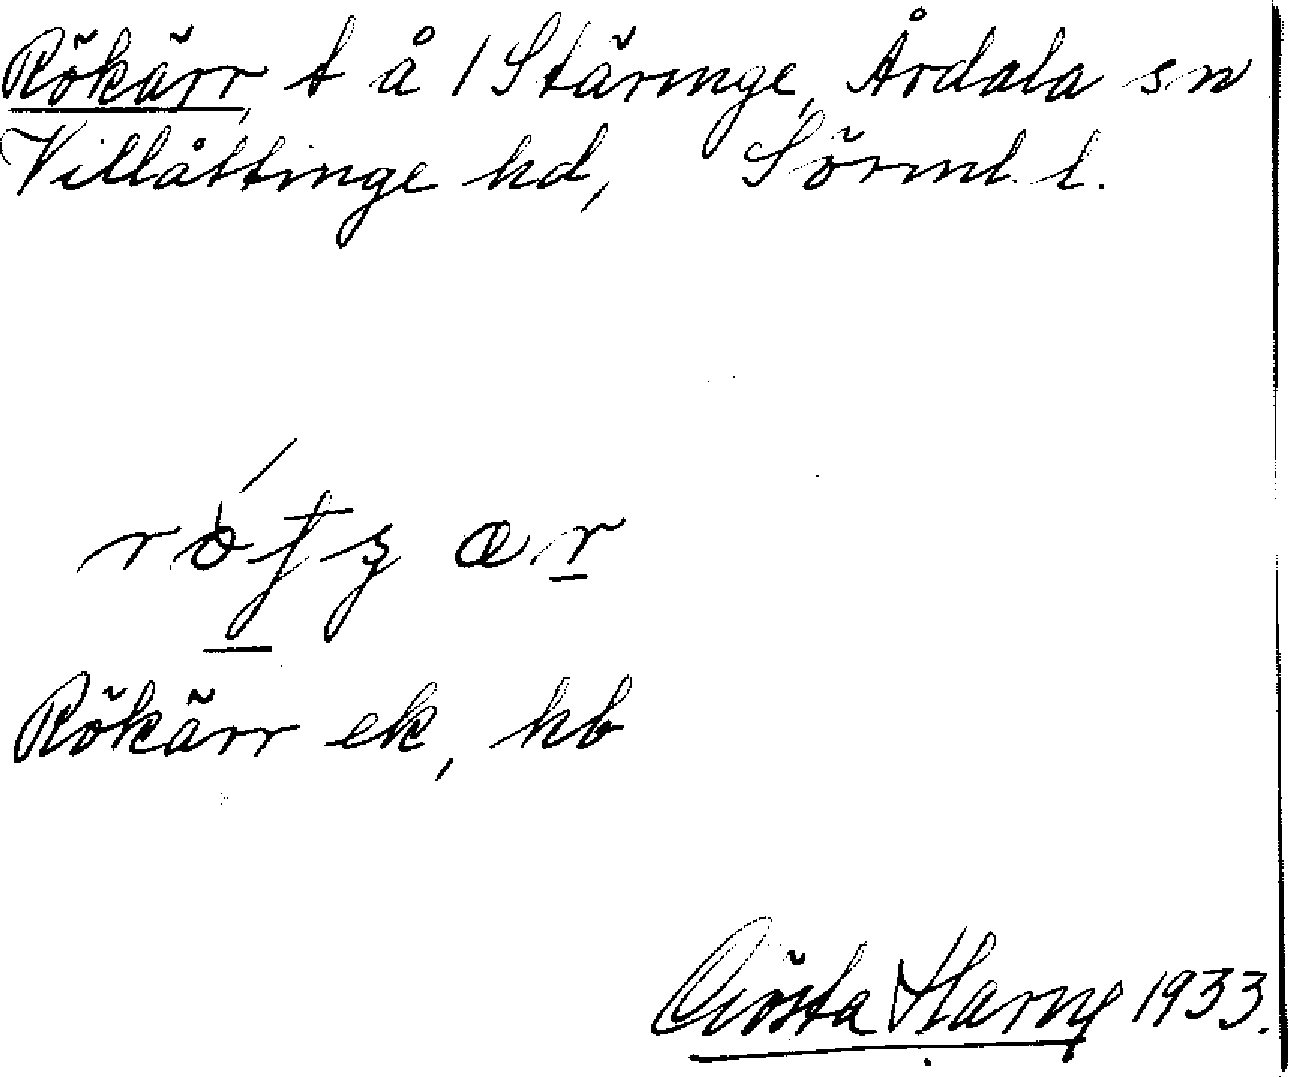 Rökärr t å 1 Stäringe, Årdala sn
Villåttinge hd, Sörml. l.
Rökärr ek, hb
Gösta Harne 1933.